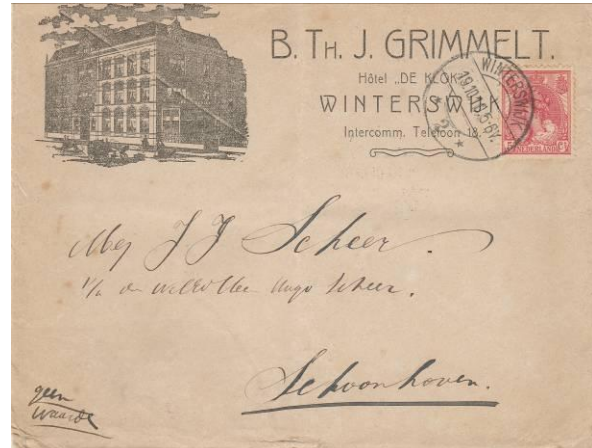 B. TH. J. GRIMMELT.
Hôtel „DE KLOK”
WINTERSWIJK
Intercomm. Telefoon 18.
WINTERSWIJK
19.10.16.5-6V.
2
NEDERLAND
Mej J J Scheer.
Scheer.
Schoonhoven.
geen
waarde